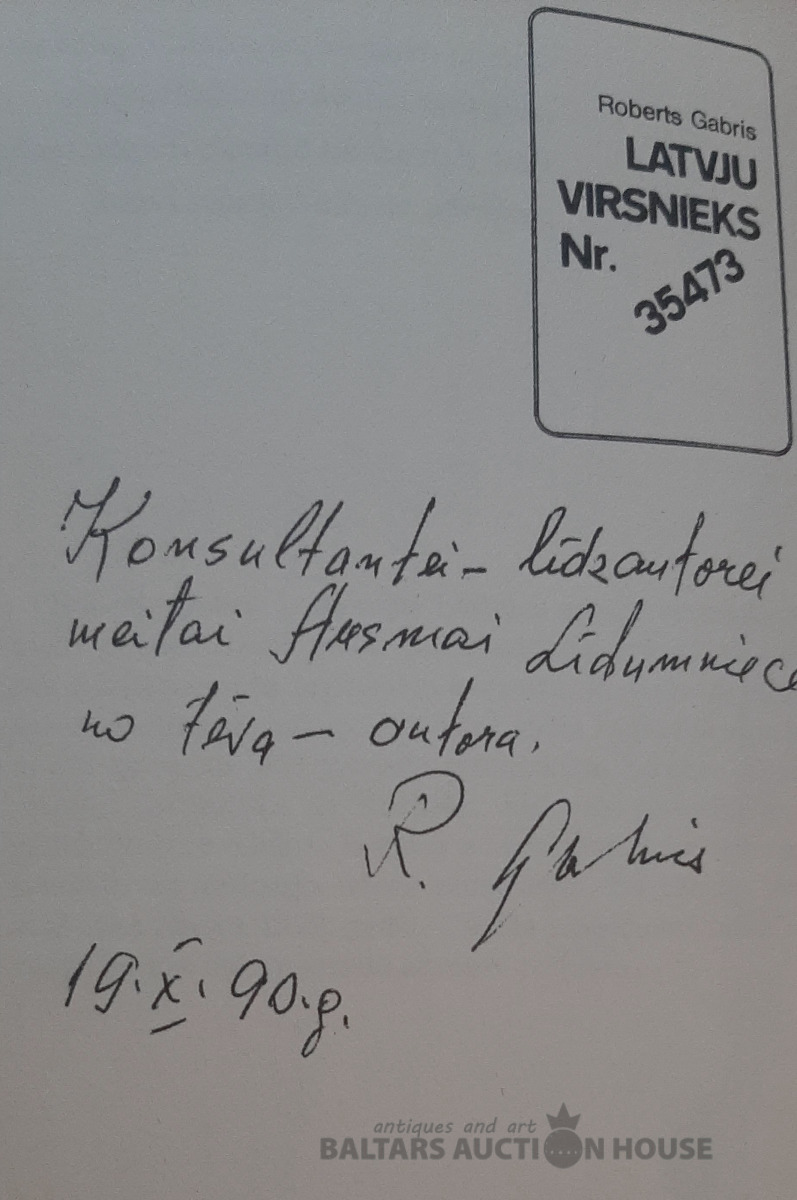 Roberts Gabris
LATVJU
VIRSNIEKS
Nr.
35473
Konsultantei – līdzautorei
meitai Ausmai Līdumniece
no tēva – autora.
R. Gabris
19.X.90.g.
antiques and art
BALTARS AUCTION HOUSE